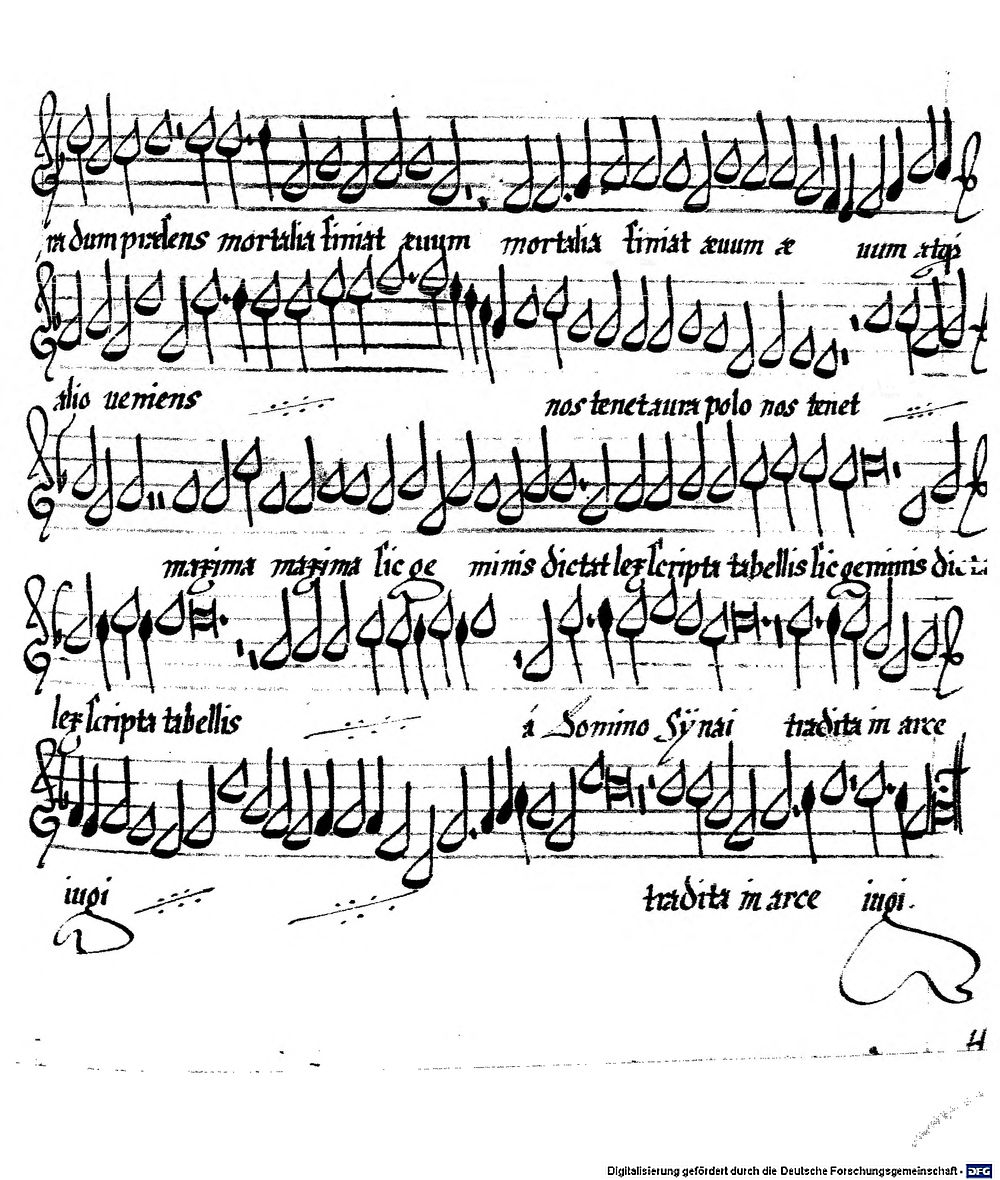 ra dum præsens mortalia finiat æuum mortalia finiat æuum æ uum atqȝ
alio ueniens nos tenet aura polo nos tenet
maxima maxima sic ge minis dictat lex scripta tabellis sic geminis dicta
lex scripta tabellis á Domino Sÿnai tradita in arce
iugi tradita in arce iugi.
H
Digitalisierung gefördert durch die Deutsche Forschungsgemeinschaft - DFG